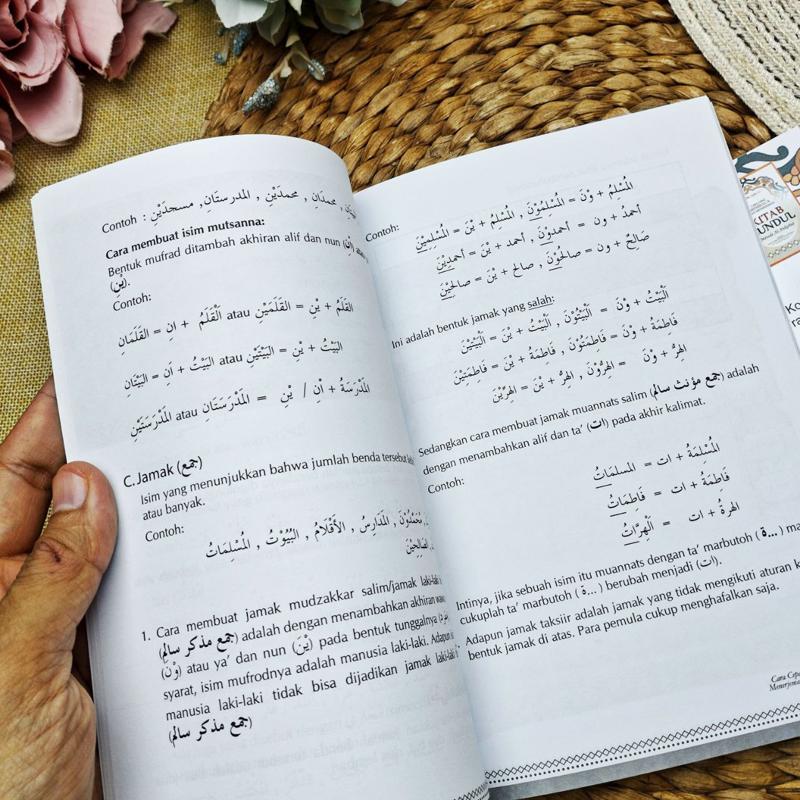 Contoh : مسجدَيْنِ , المدرستَانِ , محمدَيْنِ , محمدَانِ
Cara membuat isim mutsanna:
Bentuk mufrad ditambah akhiran alif dan nun (انِ)
(يْنِ).
Contoh:
القَلَمُ + يْنِ = القَلَمَيْنِ atau اَلْقَلَمُ + انِ = القَلَمَانِ
البَيْتُ + يْنِ = البَيْتَيْنِ atau البَيْتُ + اَنِ = البَيْتَانِ
المَدْرَسَةُ + اْنِ / يْنِ = المَدْرَسَتَانِ atau المَدْرَسَتَيْنِ
C. Jamak (جمع)
Isim yang menunjukkan bahwa jumlah benda tersebut
atau banyak.
Contoh:
المَدَارِسُ , الأَقْلَامُ , البُيُوْتُ , المُسْلِمَاتُ
الصَّالِحِيْنَ
1. Cara membuat jamak mudzakkar salim/jamak laki-laki
(جمع مذكر سالم) adalah dengan menambahkan akhiran
(وْنَ) atau ya' dan nun (يْنَ) pada bentuk tunggalnya
syarat, isim mufrodnya adalah manusia laki-laki. Adapun
manusia laki-laki tidak bisa dijadikan jamak laki-laki
(جمع مذكر سالم)
Contoh:
المُسْلِمُ + وْنَ = المُسْلِمُوْنَ , المُسْلِمُ + يْنَ = المُسْلِمِيْنَ
أحمدُ + ون = أحمدوْنَ , أحمد + يْنَ = أحمدِيْنَ
صَالِحٌ + ون = صَالِحُوْنَ , صالح + يْنَ = صالحِيْنَ
Ini adalah bentuk jamak yang salah:
اَلْبَيْتُ + وْنَ = اَلْبَيْتُوْنَ , اَلْبَيْتُ + يْنَ = اَلْبَيْتِيْنَ
فَاطِمَةُ + وْنَ = فَاطِمَتُوْنَ , فَاطِمَةُ + يْنَ = فَاطِمَتِيْنَ
الهِرُّ + وْنَ = الهِرُّوْنَ , الهِرُّ + يْنَ = الهِرِّيْنَ
Sedangkan cara membuat jamak muannats salim (جمع مؤنث سالم) adalah
dengan menambahkan alif dan ta' (ات) pada akhir kalimat.
Contoh:
المُسْلِمَةُ + ات = المسلمَاتُ
فَاطِمَةُ + ات = فَاطِمَاتُ
الهِرةُ + ات = اَلْهِرَّاتُ
Intinya, jika sebuah isim itu muannats dengan ta' marbutoh (ـة...)
cukuplah ta' marbutoh (ـة...) berubah menjadi (ات).
Adapun jamak taksiir adalah jamak yang tidak mengikuti aturan
bentuk jamak di atas. Para pemula cukup menghafalkan saja.
Cara
KITAB